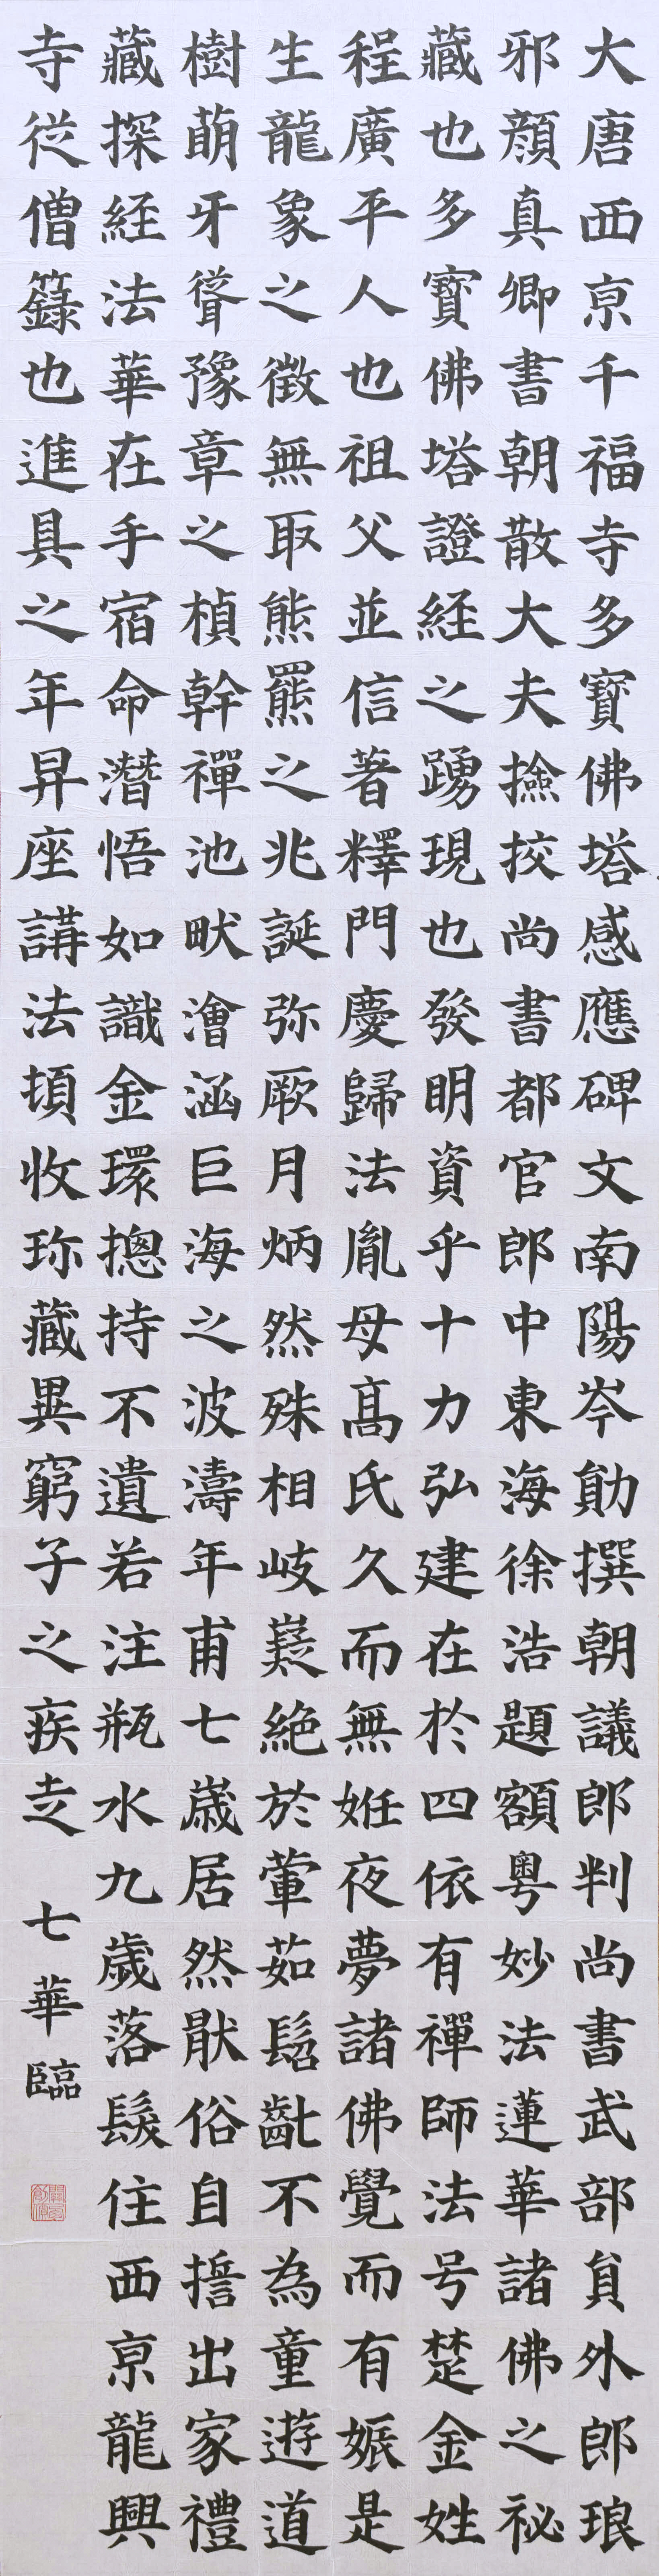 大唐西京千福寺多寳佛塔感應碑文南陽岑勛撰朝議郎判尚書武部貟外郎琅
邪顔真卿書朝散大夫撿挍尚書都官郎中東海徐浩題額粤妙法蓮華諸佛之祕
藏也多寳佛塔證経之踴現也發明資乎十力弘建在於四依有禪師法号楚金姓
程廣平人也祖父並信著釋門慶歸法胤母髙氏久而無姙夜夢諸佛覺而有娠是
生龍象之徵無取熊羆之兆誕弥厥月炳然殊相岐嶷絶於葷茹髫齔不為童遊道
樹萌牙聳豫章之楨幹禪池畎澮涵巨海之波濤年甫七歳居然猒俗自誓出家禮
藏探経法華在手宿命潛悟如識金環揔持不遺若注瓶水九歲落髮住西京龍興
寺從僧籙也進具之年昇座講法頓收珎藏異窮子之疾走 七華臨